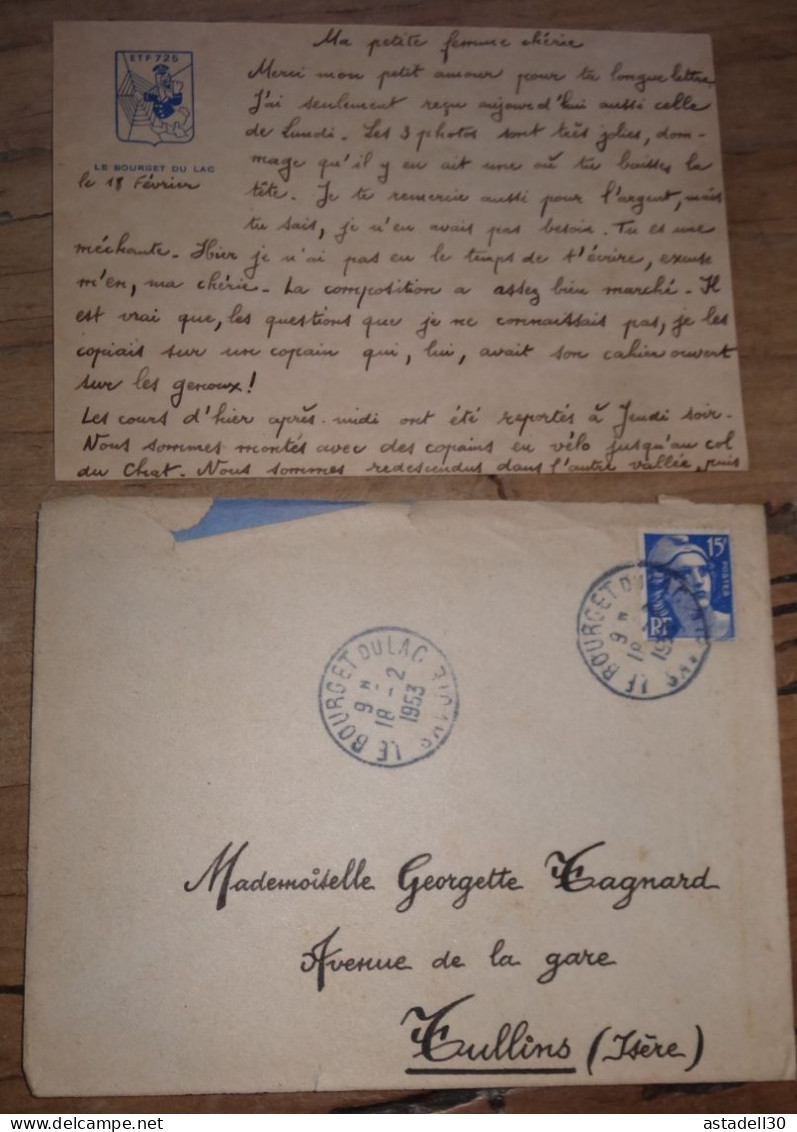 ETF 725
LE BOURGET DU LAC
le 18 Février
Ma petite femme chérie
Merci mon petit amour pour ta longue lettre
J'ai seulement reçu aujourd'hui aussi celle
de Lundi. Les 3 photos sont très jolies, dom-
mage qu'il y en ait une où tu baisses la
tête. Je te remercie aussi pour l'argent, mais
tu sais, je n'en avais pas besoin. Tu es une
méchante. Hier je n'ai pas eu le temps de t'écrire, excuse
m'en, ma chérie. La composition a assez bien marché. Il
est vrai que, les questions que je ne connaissais pas, je les
copiais sur un copain qui, lui, avait son cahier ouvert
sur les genoux!
Les cours d'hier après-midi ont été reportés à Jeudi soir.
Nous sommes montés avec des copains en vélo jusqu'au col
du Chat. Nous sommes redescendus dans l'autre vallée, puis
15F
POSTES
RF
LE BOURGET DU LAC SAVOIE
9 H
18 -2
1953
LE BOURGET DU LAC SAVOIE
9 H
18 -2
1953
Mademoiselle Georgette Tagnard
Avenue de la gare
Tullins (Isère)
delcampe.net
astadell30